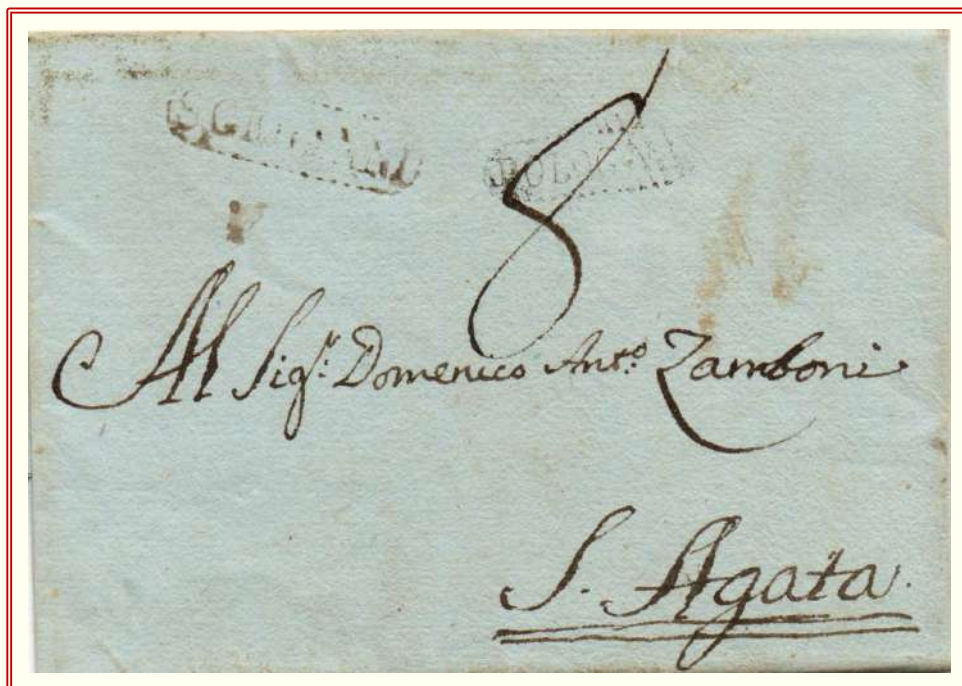 BOLOGNA
8
Al Sig.r Domenico Ant.o Zamboni
S. Agata